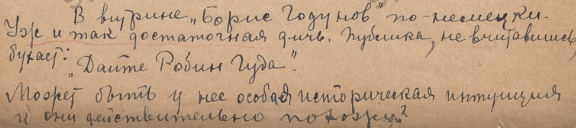 В витрине „Борис Годунов" по-немецки.
Уж и так достаточная дичь. Публика, не вчитавшись,
бухает:
„Дайте Робин Гуда".
Может быть у нее особая историческая интуиция
и они действительно похожи?